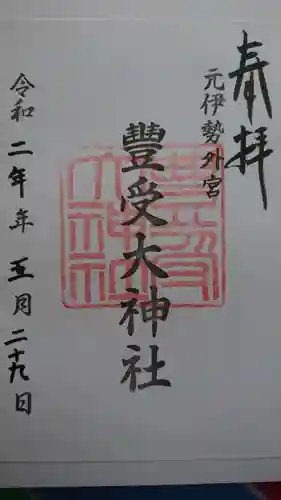 奉拝
元伊勢外宮
豊受大神社
令和二年年五月二十九日